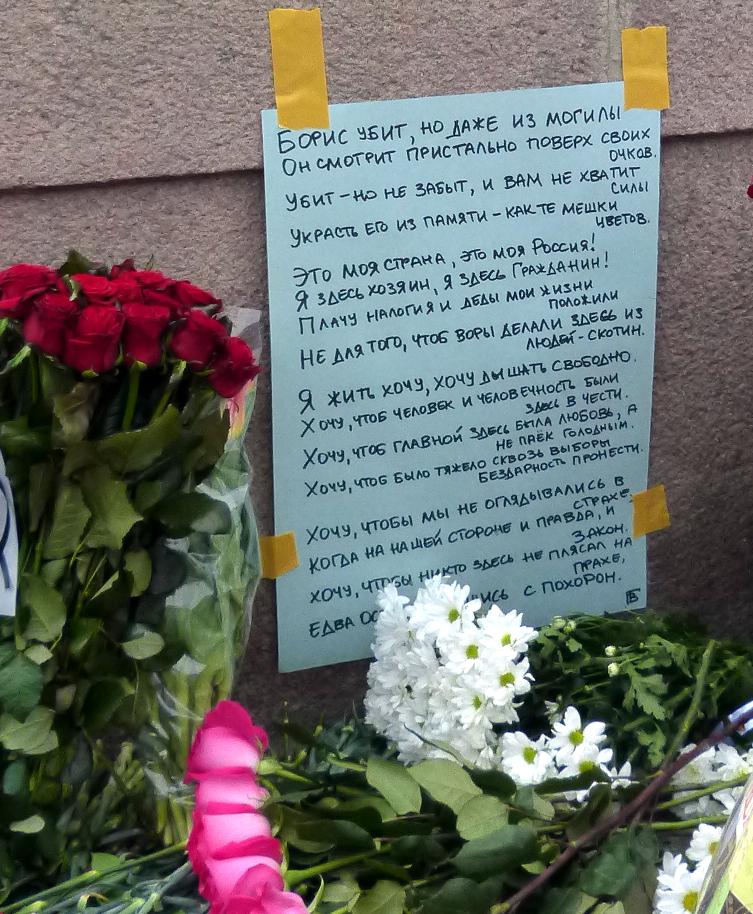 Борис убит, но даже из могилы
Он смотрит пристально поверх своих
очков.
Убит - но не забыт, и вам не хватит
силы
Украсть его из памяти - как те мешки
цветов.
Это моя страна, это моя Россия!
Я здесь хозяин, я здесь Гражданин!
Плачу налоги я и деды мои жизни
положили
Не для того, чтоб воры делали здесь из
людей - скотин.
Я жить хочу, хочу дышать свободно.
Хочу, чтоб человек и человечность были
здесь в чести.
Хочу, чтоб главной здесь была любовь, а
не паёк голодным.
Хочу, чтоб было тяжело сквозь выборы
бездарность пронести.
Хочу, чтобы мы не оглядывались в
страхе,
Когда на нашей стороне и правда, и
закон.
Хочу, чтобы никто здесь не плясал на
прахе,
Едва с похорон.